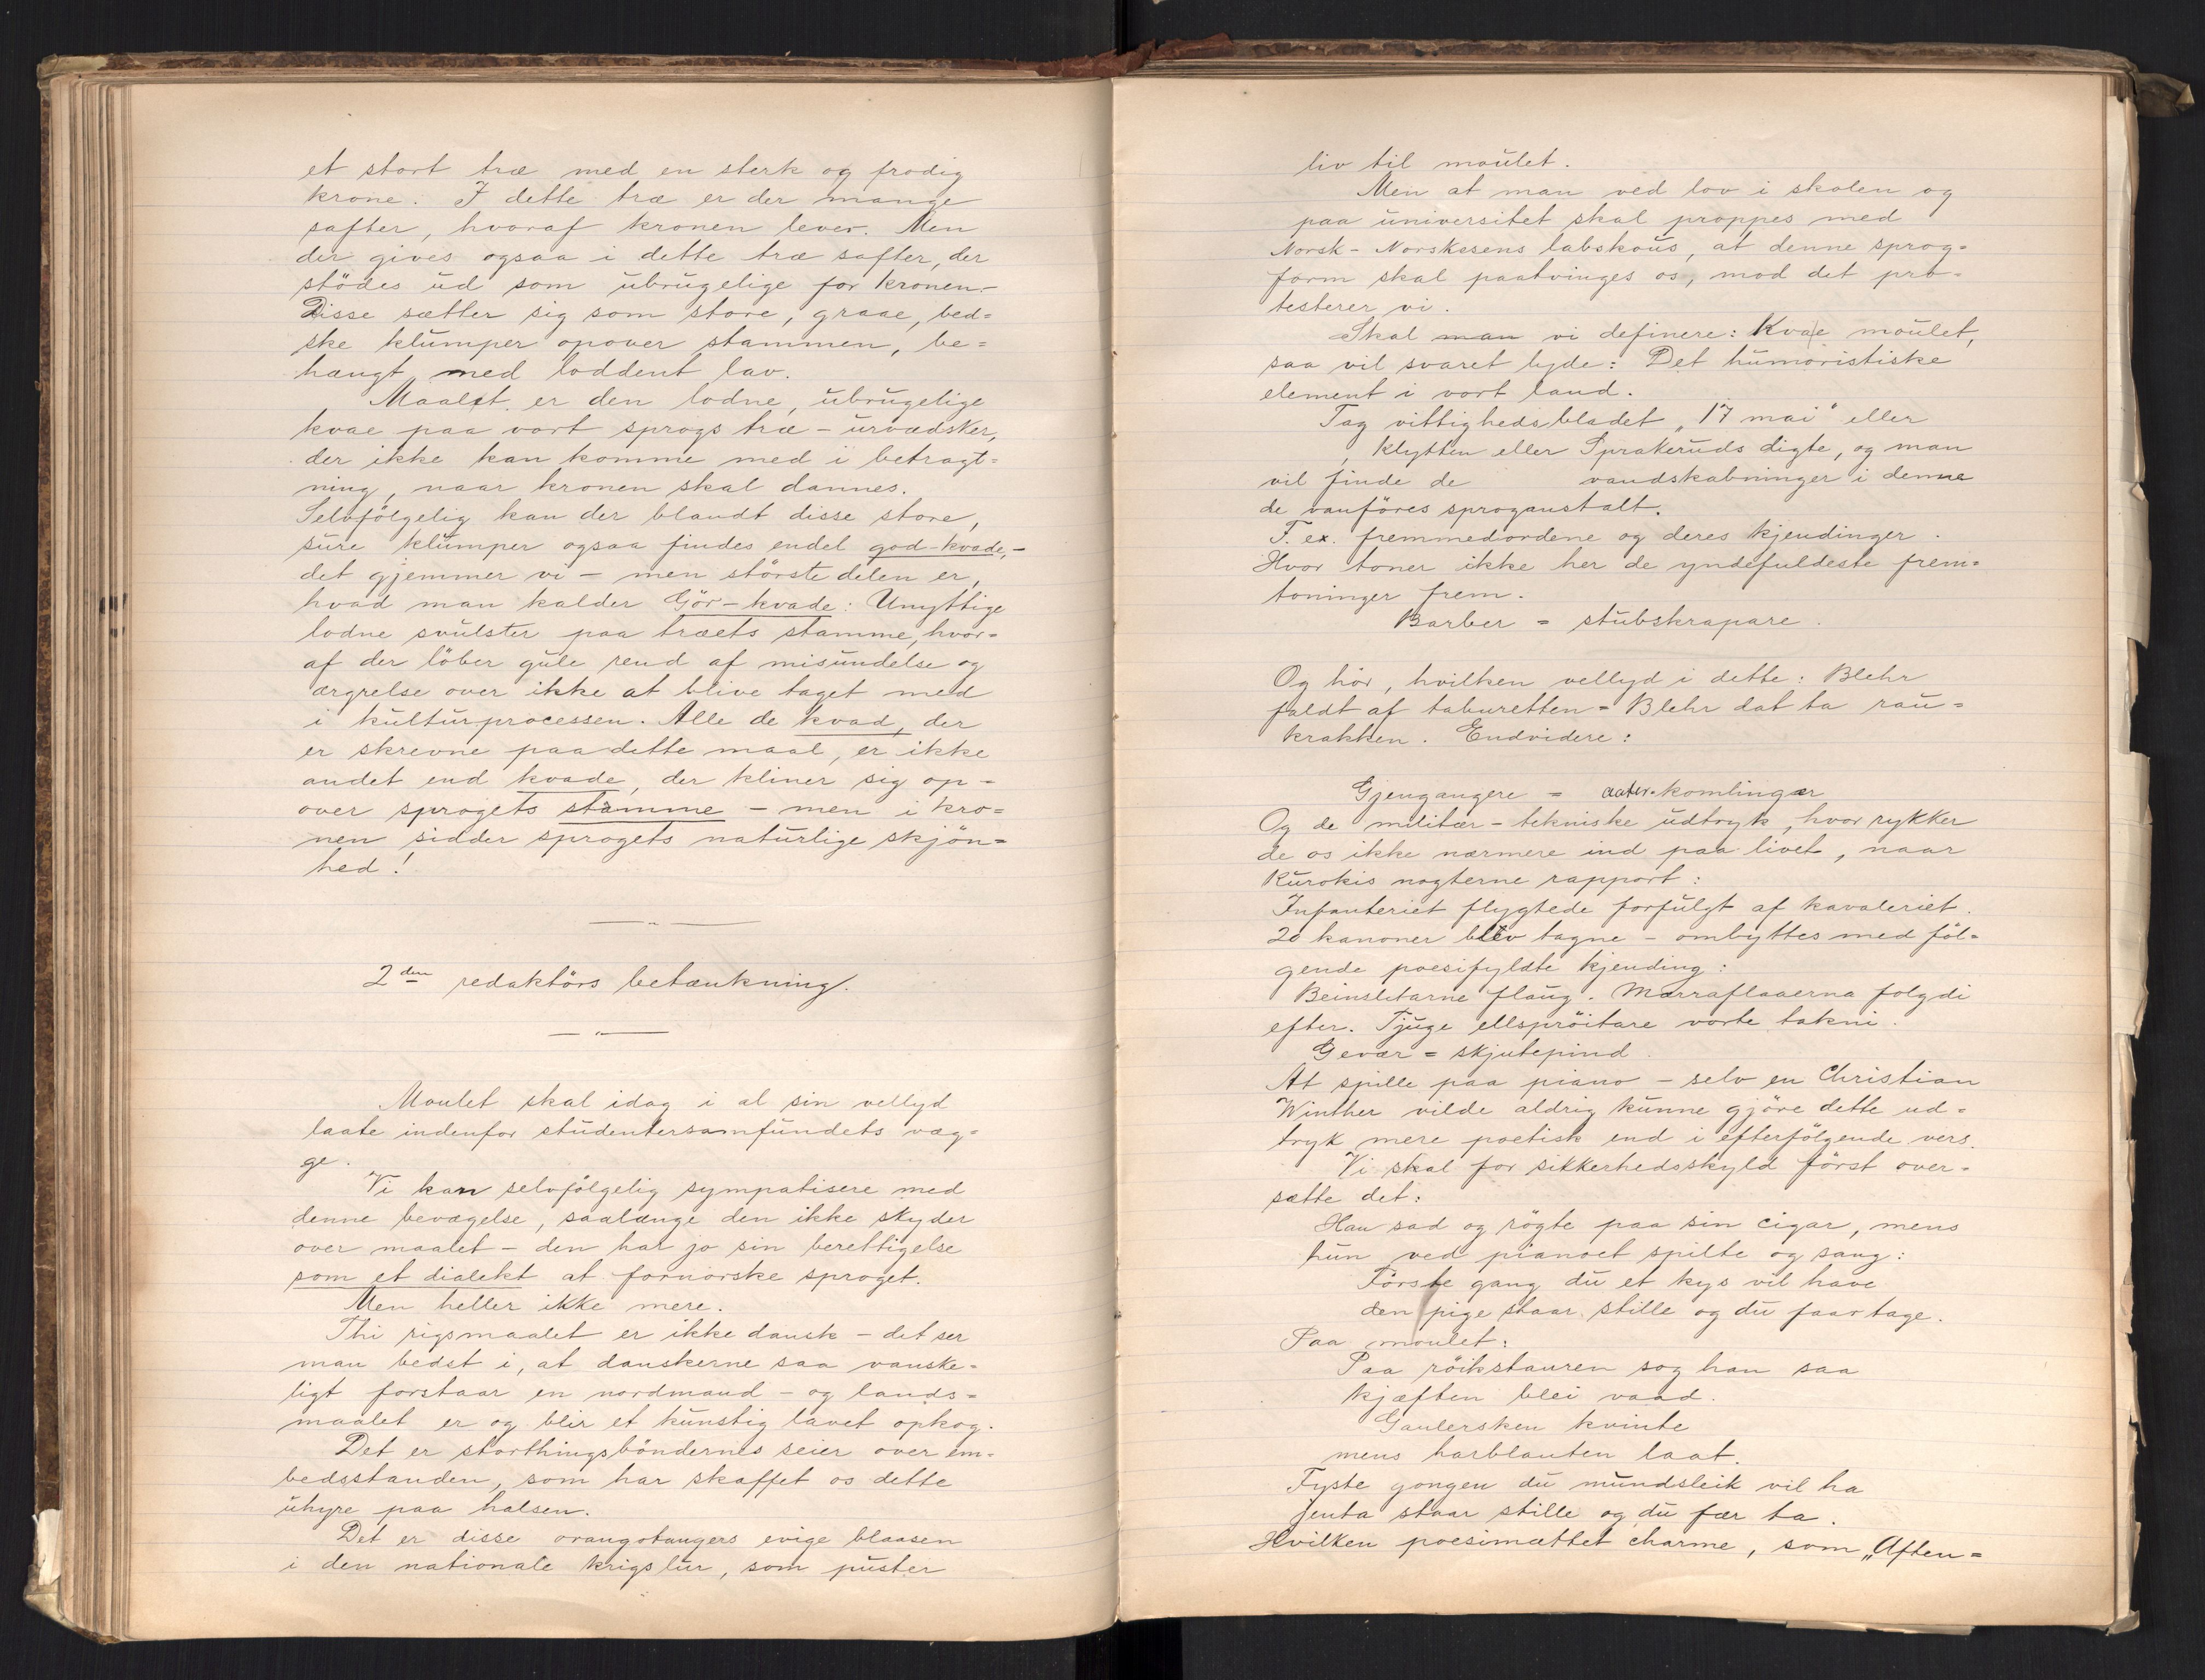 et stort træ med en sterk og frodig
krone. I dette træ er der mange
safter, hvoraf kronen lever. Men
der gives ogsaa i dette træ safter, der
stödes ud som ubrugelige for kronen.-
Disse sætter sig som store, graae, bed=
ske klumper opover stammen, be=
hængt med loddent lav.
Maalet er den lodne, ubrugelige
kvae paa vort sprogs træ - urvædsker,
der ikke kan komme med i betragt=
ning, naar kronen skal dannes.
Selvfölgelig kan der blandt disse store,
sure klumper ogsaa findes endel god-kvade,-
det gjemmer vi - men störste delen er,
hvad man kalder Gör-kvade: Unyttige
lodne svulster paa træets stamme, hvor=
af der löber gule rend af misundelse og
ærgrelse over ikke at blive taget med
i kulturprocessen. Alle de kvad, der
er skrevne paa dette maal, er ikke
andet end kvade, der kliner sig op=
over sprogets stamme - men i kro=
nen sidder sprogets naturlige skjön=
hed!
2den redaktörs betænkning.
Moulet skal idag i al sin vellyd
laate indenfor studentersamfundets væg=
ge.
Vi kan selvfölgelig sympatisere med
denne bevægelse, saalænge den ikke skyder
over maalet - den har jo sin berettigelse
som et dialekt at fornorske sproget.
Men heller ikke mere.
Thi rigsmaalet er ikke dansk - det ser
man bedst i, at danskerne saa vanske=
ligt forstaar en nordmand - og lands=
maalet er og blir et kunstig lavet opkog.
Det er storthingsböndernes seier over em=
bedsstanden, som har skaffet os dette
uhyre paa halsen.
Det er disse orangotangers evige blaasen
i den nationale krigslur, som puster
liv til moulet.
Men at man ved lov i skolen og
paa universitet skal proppes med
Norsk-Norskesens labskous, at denne sprog=
form skal paatvinges os, mod det pro=
testerer vi.
Skal man vi definere: Kvae moulet,
saa vil svaret lyde: Det humoristiske
element i vort land.
Tag vittighedsbladet „17 mai" eller
, Klytten eller Sprakeruds digte, og man
vil finde de vandskabninger i denne
de vanföres sproganstalt.
F. ex. fremmedordene og deres kjendinger.
Hvor toner ikke her de yndefuldeste frem=
toninger frem.
Barber = stubskrapare.
Og hör, hvilken vellyd i dette: Blehr
faldt af taburetten = Blehr dat ta rau=
krakken. Endvidere:
Gjengangere = aater-komlinger
Og de militær-tekniske udtryk, hvor rykker
de os ikke nærmere ind paa livet, naar
Kurokis nøgterne rapport:
Infanteriet flygtede forfulgt af kavaleriet.
20 kanoner blev tagne - ombyttes med föl=
gende poesifyldte kjending:
Beinslitarne flaug. Mærraflaaerna folgdi
efter. Tjuge ellspröitare vorte takni.
Gevær = skjutepind.
At spille paa piano - selv en Christian
Winther vilde aldrig kunne gjöre dette ud=
tryk mere poetisk end i efterfölgende vers.
Vi skal for sikkerhedsskyld först over=
sætte det:
Han sad og rögte paa sin cigar, mens
hun ved pianoet spilte og sang:
Förste gang du et kys vil have
den pige staar stille og du faar tage.
Paa moulet:
Paa röikstauren sog han saa
kjæften blei vaad.
Gaulersken kvinte
mens harblauten laat.
Fyste gongen du mundsleik vil ha
jenta staar stille og du fær ta.
Hvilken poesimættet charme, som „Aften=